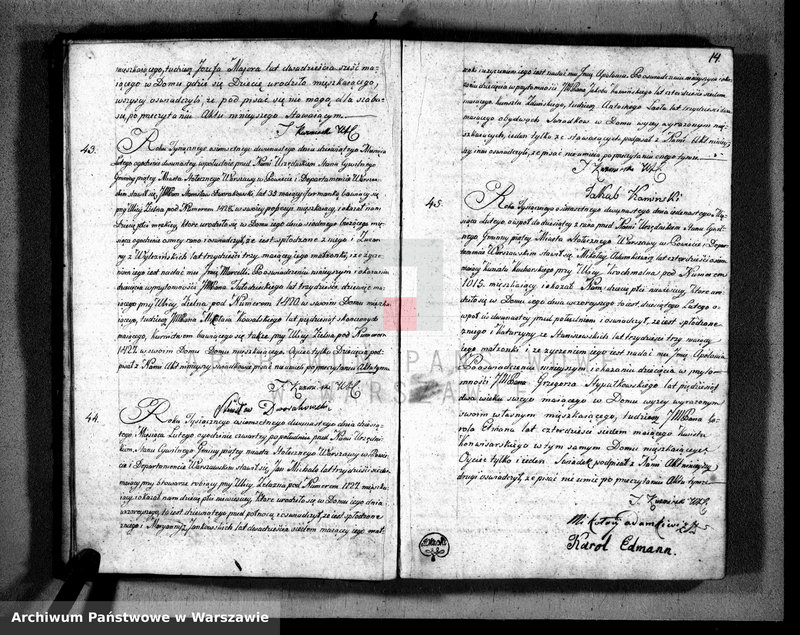 mieszkającego, tudzież Józefa Majora lat dwadzieścia sześć ma-
jącego w Domu gdzie się Dziecię urodziło mieszkającego,
wszyscy oświadczyli, że pod pisać się nie mogą dla słabo-
ści, po przeczytaniu Aktu ninieyszego Stawającym.
43.
Roku Tysiącznego ośmsetnego dwunastego dnia dziesiątego Miesiąca
Lutego o godzinie dwunastey w południe przed Nami Urzędnikiem Stanu Cywilnego
Gminy piątey Miasta Stołecznego Warszawy w Powiecie i Departamencie Warszaw-
skim stawił się JMPan Stanisław lat 35 maiący furmanką bawiący się
przy Ulicy Zielna pod Numerem 1428 w swoiey possessyi mieszkaiący, i okazał nam
Dziecię płci męskiey, które urodziło się w Domu iego dnia siódmego bieżącego mie-
siąca o godzinie osmey rano i oświadczył, że iest spłodzone z niego i Zuzanny
z lat trzydzieści trzy maiącey iego małżonki, i że życze-
niem iego iest nadać mu Imię Marcelli. Po oświadczeniu ninieyszym i okazaniu
dziecięcia w przytomności JMPana lat trzydzieści dziewięć ma-
jącego przy Ulicy Zielna pod Numerem 1420 w swoim Domu mieszka-
jącego, tudzież JMPana Kowalskiego lat pięćdziesiąt skończonych
maiącego, bawiącego się także przy Ulicy Zielna pod Numerem
1427 w swoim Domu mieszkaiącego. Oyciec tylko Dziecięcia pod-
pisał z Nami Akt ninieyszy Świadkowie pisać nie umieli po przeczytaniu Aktu tym
44.
Roku Tysiącznego ośmsetnego dwunastego dnia dziesią-
tego Miesiąca Lutego o godzinie czwartey po południu przed Nami Urzędni-
kiem Stanu Cywilnego Gminy piątey miasta Stołecznego Warszawy w Powie-
cie i Departamencie Warszawskim stawił się Jan Michała lat trzydzieści siedm
maiący przy Ulicy Żelazna pod Numerem mieszka-
iący i okazał nam dziecię płci niewieściey, które urodziło się w Domu iego dnia
wczorayszego, to iest dziewiątego przed północą i oświadczył, że iest spłodzone
z niego i Maryanny Jankowskich lat dwadzieścia siedem maiącey iego mał-
14.
żonki i że życzeniem iego iest nadać mu Imię Apolonia. Po oświadczeniu ninieyszym i oka-
zaniu dziecięcia w przytomności JMPana Jakuba Kamińskiego lat czterdzieści siedem
maiącego tudzież Antoniego lat trzydzieści
maiącego obydwóch Świadków w Domu wyżey wyrażonym mie-
szkaiących, ieden tylko ze stawaiących podpisał z Nami Akt niniey-
szy inni oświadczyli, że pisać nie umieią po przeczytaniu onego tymże
Jakub Kaminski
45.
Roku Tysiącznego ośmsetnego dwunastego dnia iedenastego Mie-
siąca Lutego o wpół do dziesiątey z rana przed Nami Urzędnikiem Stanu Cywil-
nego Gminy piątey Miasta Stołecznego Warszawy w Powiecie i Depar-
tamencie Warszawskim stawił się Mikołay Adamkiewicz lat czterdzieści osiem
maiący kunszt kucharski przy Ulicy Krochmalna pod Numerem
1015. mieszkaiący i okazał Nam dziecię płci niewieściey, które uro-
dziło się w Domu iego dnia wczorayszego to iest dziesiątego Lutego o
wpół do dwunastey przed południem i oświadczył, że iest spłodzone
z niego i Katarzyny ze Staniszewskich lat trzydzieści trzy maiącey
iego małżonki i że życzeniem iego iest nadać mu Imię Apolonia
Po oświadczeniu ninieyszym i okazaniu dziecięcia w przyto-
mności JMPana Grzegorza lat pięćdziesiąt
dwa wieku swego maiącego w Domu wyżey wyrażonym
swoim własnym mieszkaiącego, tudzież JMPana Ka-
rola Etmana lat czterdzieści siedem maiącego kunsztu
konwisarskiego w tym samym Domu mieszkaiącego
Oyciec tylko i ieden Świadek podpisał z Nami Akt ninieyszy
drugi oświadczył, że pisać nie umie po przeczytaniu Aktu tymże
Mikołay Adamkiewicz
Karol Edmann.
ARCHIWUM PAŃSTWOWE
W WARSZAWIE
Archiwum Państwowe w Warszawie